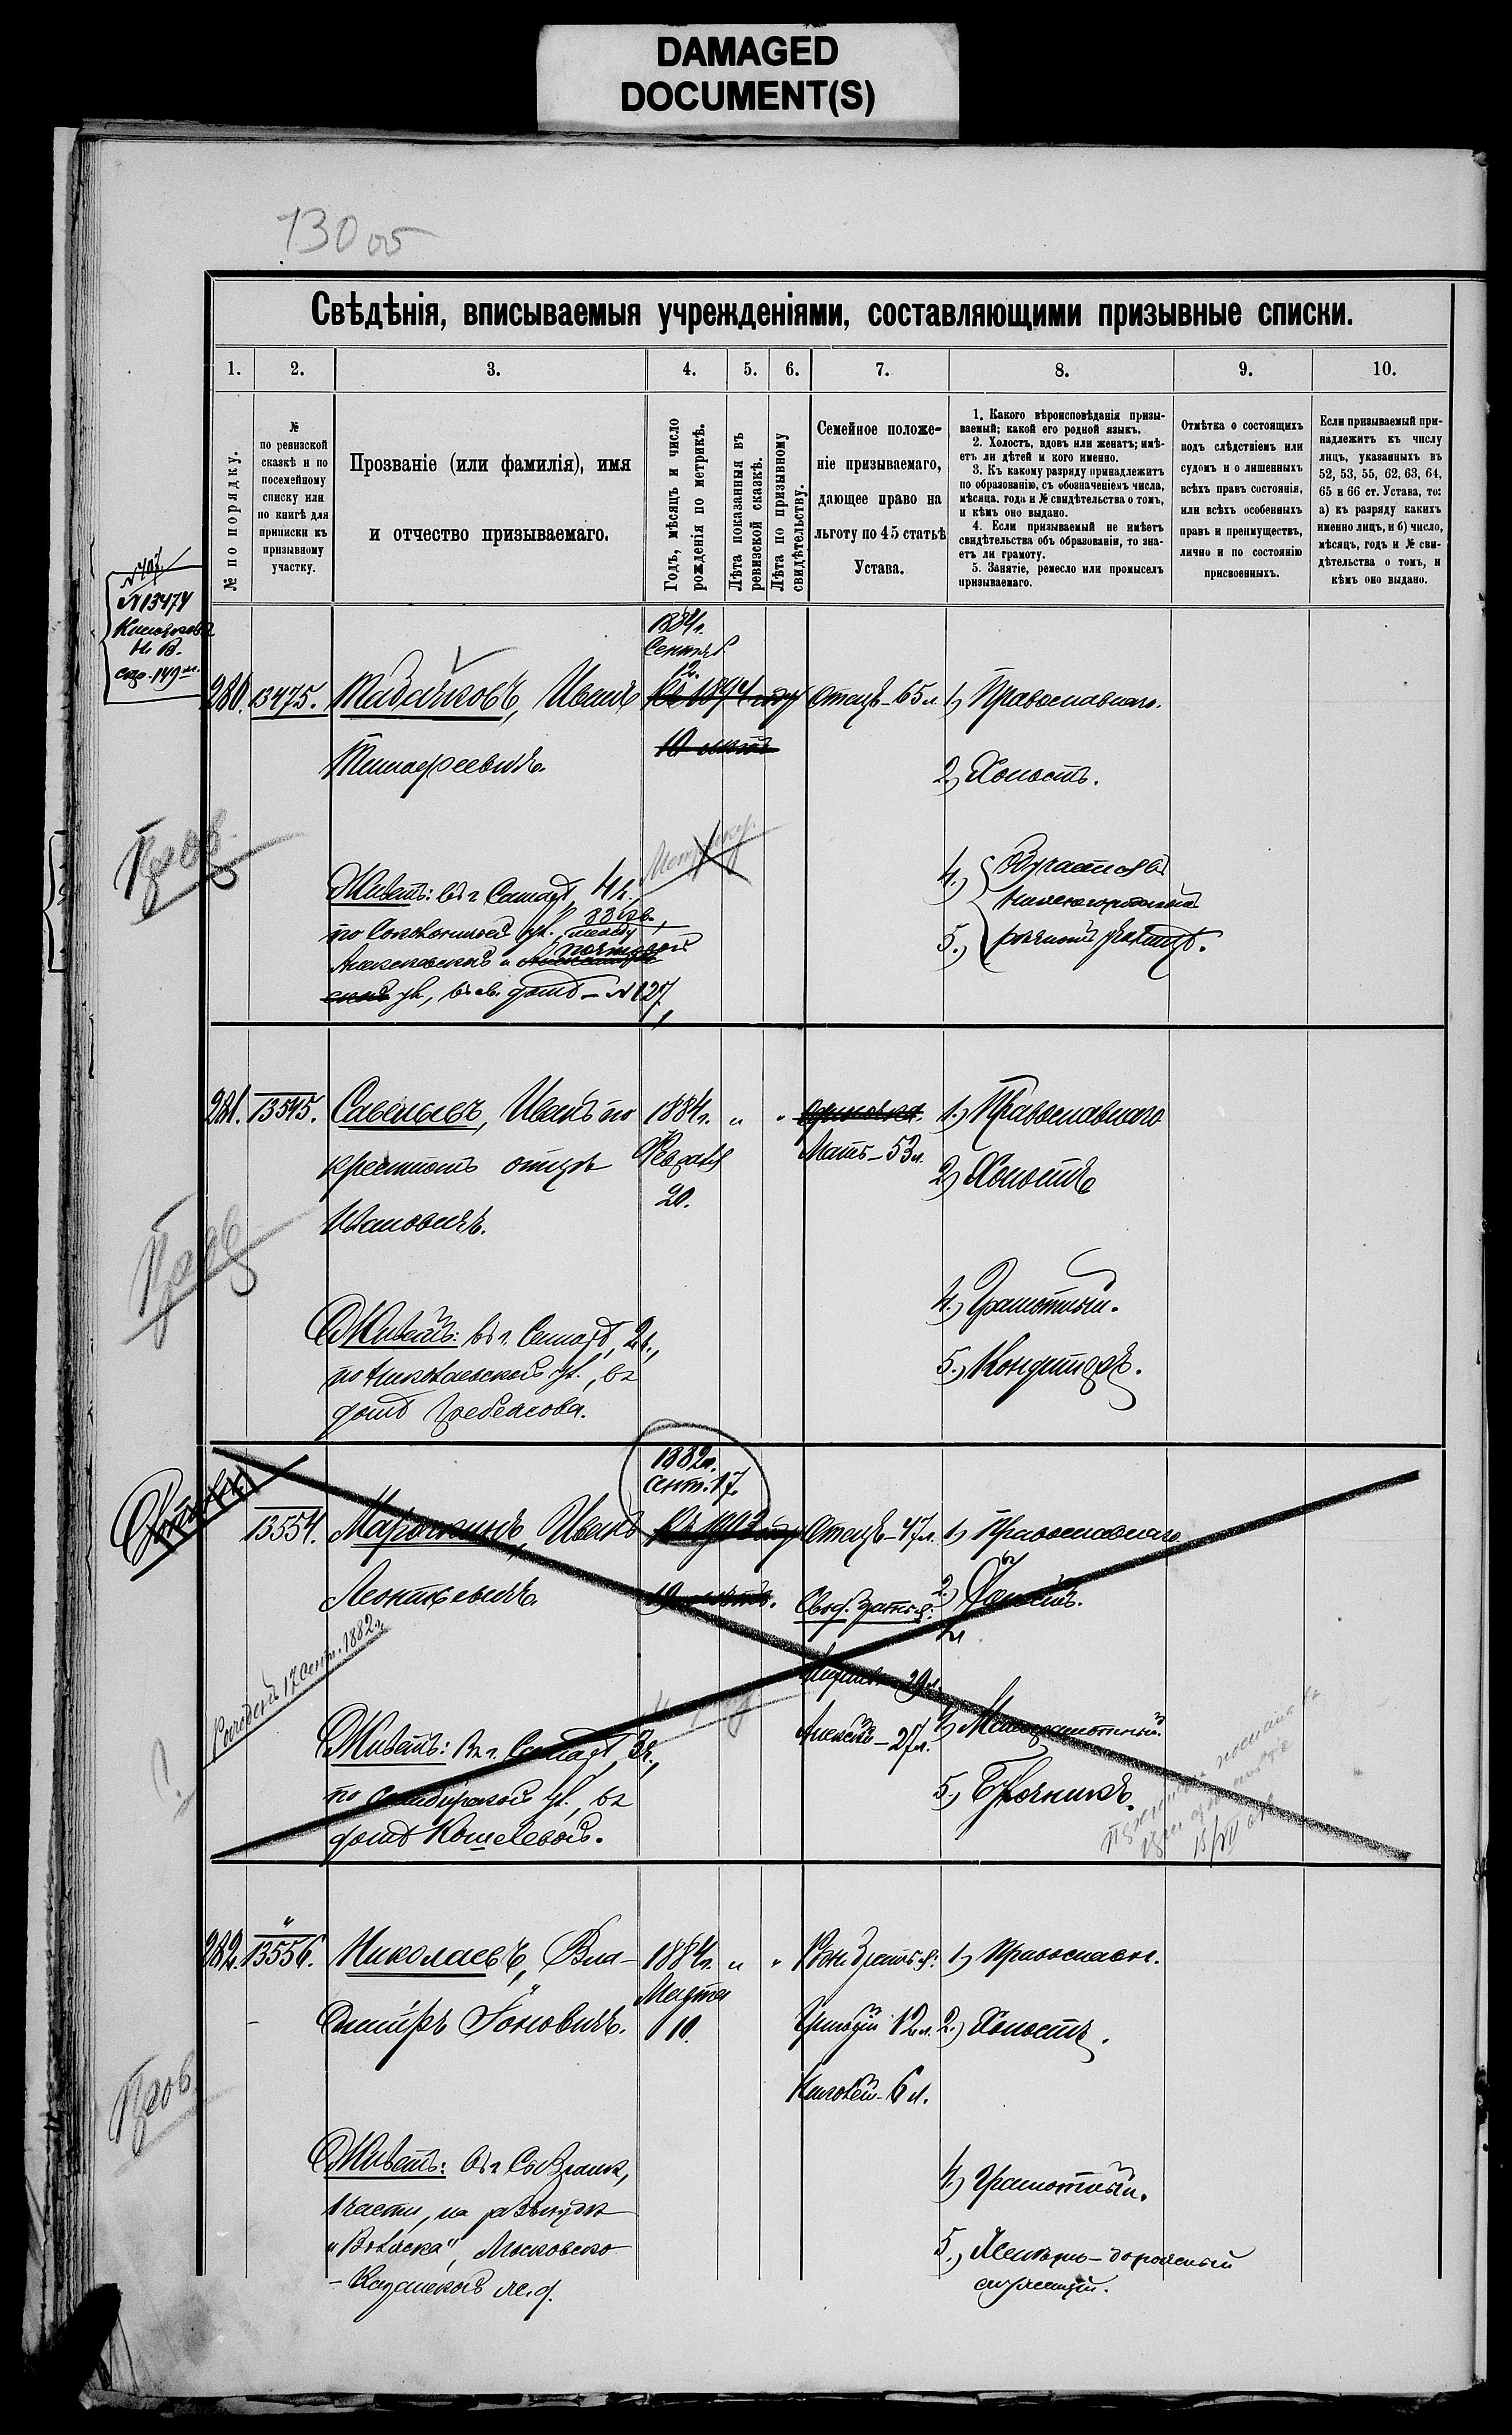 DAMAGED
DOCUMENT(S)
130 об
Свѣдѣнія, вписываемыя учрежденіями, составляющими призывные списки.
1. 2. 3. 4. 5. 6. 7. 8. 9. 10.
№ по порядку.
№
по ревизской
сказкѣ и по
посемейному
списку или
по книгѣ для
приписки къ
призывному
участку.
Прозваніе (или фамилія), имя
и отчество призываемаго.
Годъ, мѣсяцъ и число
рожденія по метрикѣ.
Лѣта показанныя въ
ревизской сказкѣ.
Лѣта по призывному
свидѣтельству.
Семейное положе-
ніе призываемаго,
дающее право на
льготу по 45 статьѣ
Устава.
1. Какого вѣроисповѣданія призы-
ваемый; какой его родной языкъ.
2. Холостъ, вдовъ или женатъ; имѣ-
етъ ли дѣтей и кого именно.
3. Къ какому разряду принадлежитъ
по образованію, съ обозначеніемъ числа,
мѣсяца, года и № свидѣтельства о томъ,
и кѣмъ оно выдано.
4. Если призываемый не имѣетъ
свидѣтельства объ образованіи, то зна-
етъ ли грамоту.
5. Занятіе, ремесло или промыселъ
призываемаго.
Отмѣтка о состоящихъ
подъ слѣдствіемъ или
судомъ и о лишенныхъ
всѣхъ правъ состоянія,
или всѣхъ особенныхъ
правъ и преимуществъ,
лично и по состоянію
присвоенныхъ.
Если призываемый при-
надлежитъ къ числу
лицъ, указанныхъ въ
52, 53, 55, 62, 63, 64,
65 и 66 ст. Устава, то:
а) къ разряду какихъ
именно лицъ, и б) число,
мѣсяцъ, годъ и № сви-
дѣтельства о томъ, и
кѣмъ оно выдано.
№ 13474
Н. В.
стр. 149
1884 г.
Сентяб.
12.
280. 13475. Иванъ Къ 1894 году Отецъ - 65 л. 1) Православнаго.
Тимофеевичъ. 10 лѣтъ
2) Холостъ.
Пров.
Живетъ: въ г. Самарѣ, 4 ч.
по Соколничьей ул., между
Алексеевской и
ул., въ св. домѣ - № 127,
4.)
5.)
281. 13545. Савельевъ, Иванъ по 1884 г. " " 1.) Православнаго
крестному отцу Февраля Мать - 53 л.
Ивановичъ. 20. 2) Холостъ
Пров
4.) Грамотный.
Живетъ: въ г. Самарѣ, 2 ч.,
по Николаевской ул., въ
домѣ Гребежова.
5.) Кондитеръ.
1882 г.
Сент. 17.
13554. Марочкинъ, Иванъ Къ 1903 году Отецъ - 47 л. 1) Православнаго
Леонтьевичъ. лѣтъ. 2.) Холостъ.
Рожденъ 17 Сент. 1882 г.
29 л.
Алексѣй - 27 л.
4) Малограмотный
Живетъ: въ г. Самарѣ, 3 ч.,
по Симбирской ул., въ
домѣ Кошелевой.
5.) Булочникъ.
282. 13556. Николаевъ, Вла- 1884 г. " " 1) Православн.
диміръ Іоновичъ. Марта Григорій 12 л. 2.) Холостъ.
10. 6 л.
Пров
Живетъ: въ г. Сызрани,
1 части, на разъѣздѣ
Московско
- Казанской ж. д.
4.) Грамотный.
5.) Желѣзно-дорожный
служащій.